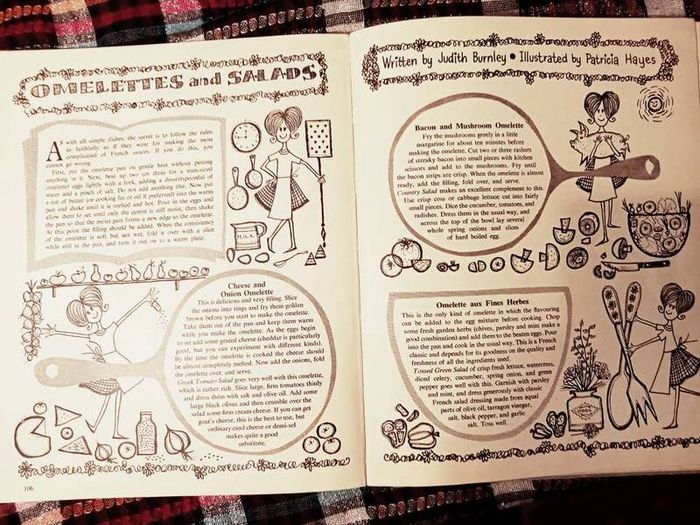 OMELETTES and SALADS
As with all simple dishes, the secret is to follow the rules
as faithfully as if they were for making the most
complicated of French sauces. If you do this, you
cannot go wrong.
First, put the omelette pan on gentle heat without putting
anything in it. Next, beat up two (or three for a man-sized
omelette) eggs lightly with a fork, adding a dessertspoonful of
water and a pinch of salt. Do not add anything else. Now put
a nut of butter (or cooking fat or oil if preferred) into the warm
pan and shake until it is melted and hot. Pour in the eggs and
allow them to set until only the centre is still moist, then shake
the pan so that the moist part forms a new edge to the omelette.
At this point the filling should be added. When the consistency
of the omelette is soft but not wet, fold it over with a slice
while still in the pan, and turn it out on to a warm plate.
Cheese and
Onion Omelette
This is delicious and very filling. Slice
the onions into rings and fry them golden
brown before you start to make the omelette.
Take them out of the pan and keep them warm
while you make the omelette. As the eggs begin
to set add some grated cheese (cheddar is particularly
good, but you can experiment with different kinds).
By the time the omelette is cooked the cheese should
be almost completely melted. Now add the onions, fold
the omelette over, and serve.
Greek Tomato Salad goes very well with this omelette,
which is rather rich. Slice large, firm tomatoes thinly
and dress them with salt and olive oil. Add some
large black olives and then crumble over the
salad some firm cream cheese. If you can get
goat's cheese, this is the best to use, but
ordinary curd cheese or demi-sel
makes quite a good
substitute.
106
Written by Judith Burnley • Illustrated by Patricia Hayes
Bacon and Mushroom Omelette
Fry the mushrooms gently in a little
margarine for about ten minutes before
making the omelette. Cut two or three rashers
of streaky bacon into small pieces with kitchen
scissors and add to the mushrooms. Fry until
the bacon strips are crisp. When the omelette is almost
ready, add the filling, fold over, and serve.
Country Salad makes an excellent complement to this.
Use crisp cos or cabbage lettuce cut into fairly
small pieces. Dice the cucumber, tomatoes, and
radishes. Dress them in the usual way, and
across the top of the bowl lay several
whole spring onions and slices
of hard boiled egg.
Omelette aux Fines Herbes
This is the only kind of omelette in which the flavouring
can be added to the egg mixture before cooking. Chop
some fresh garden herbs (chives, parsley and mint make a
good combination) and add them to the beaten eggs. Pour
into the pan and cook in the usual way. This is a French
classic and depends for its goodness on the quality and
freshness of all the ingredients used.
Tossed Green Salad of crisp fresh lettuce, watercress,
diced celery, cucumber, spring onion, and green
pepper goes well with this. Garnish with parsley
and mint, and dress generously with classic
French salad dressing made from equal
parts of olive oil, tarragon vinegar,
salt, black pepper, and garlic
salt. Toss well.